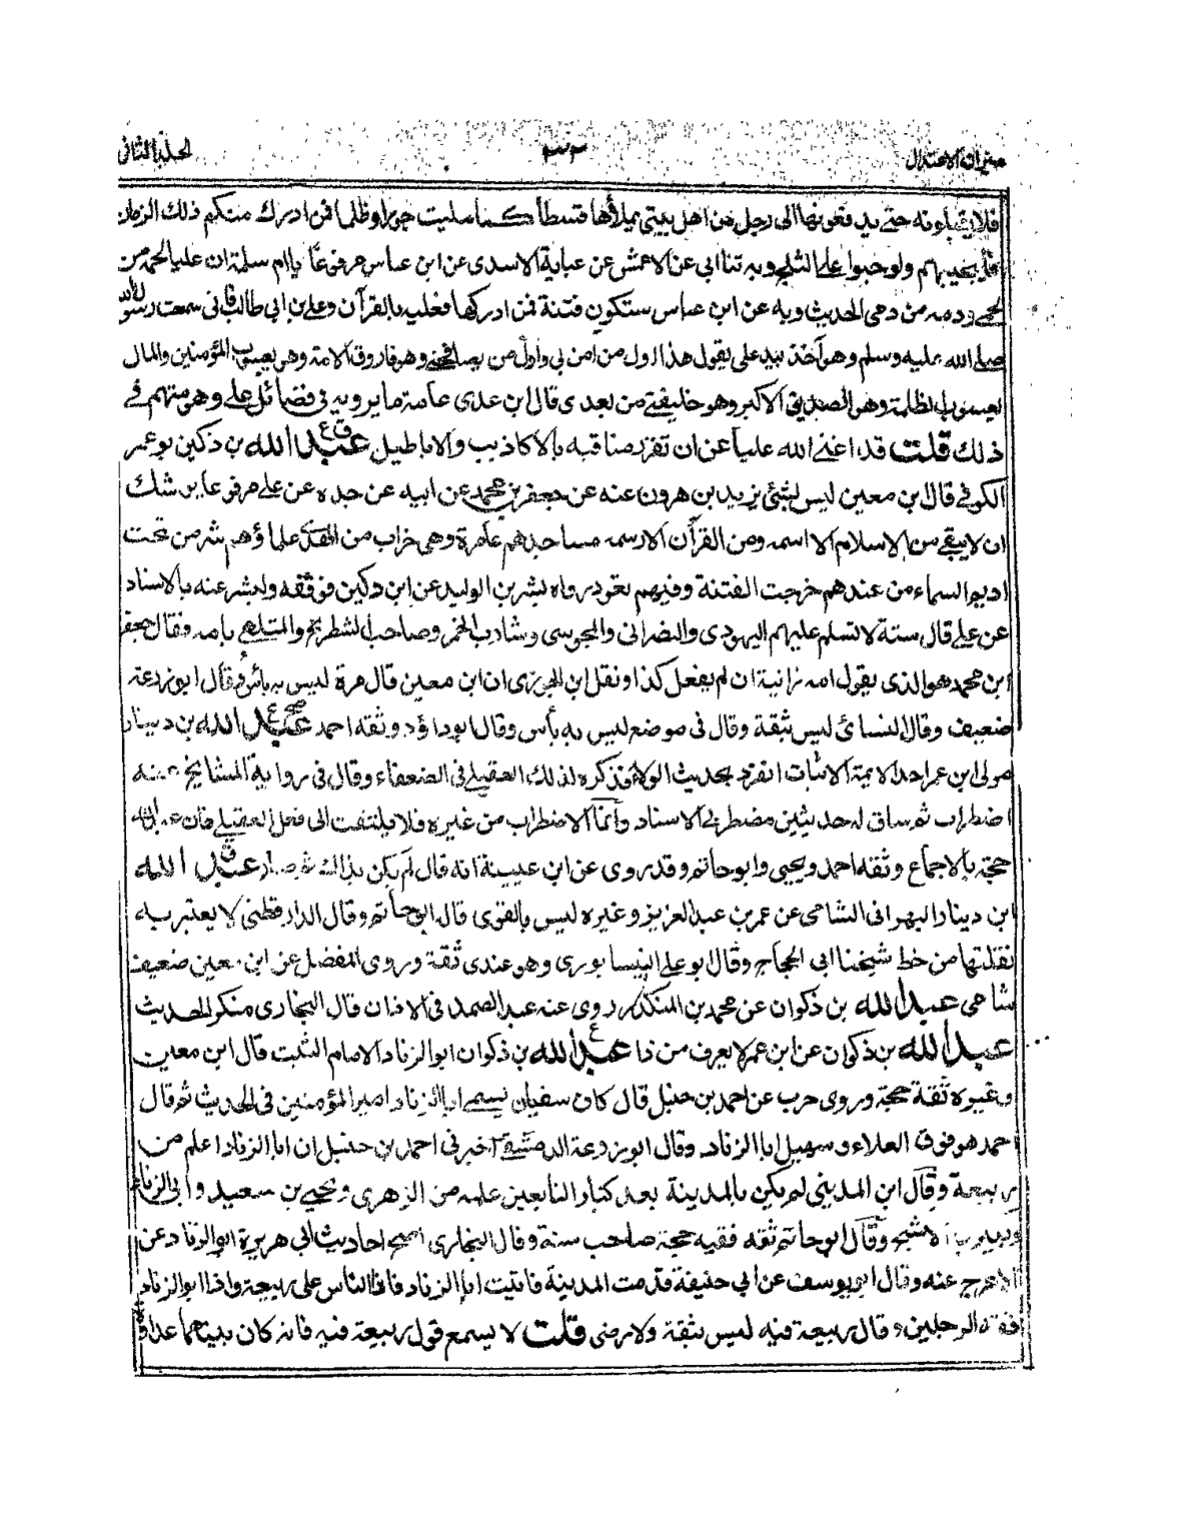 ميزان الاعتدال ٣٢ الجلد الثانى
فلا يقبلونه حتى يدفعونها الى رجل من اهل بيتى يملأها قسطا كما ملئت جورا وظلما فمن ادرك منكم ذلك الزمان
فليجيبهم ولو حبوا على الثلج وبه ثنا ابى عن الاعمش عن عباية الاسدى عن ابن عباس مرفوعا يا ام سلمة ان عليا لحمه من
لحمى ودمه من دمى الحديث وبه عن ابن عباس ستكون فتنة فمن ادركها فعليه بالقرآن وعلى بن ابى طالب فانى سمعت رسول الله
صلى الله عليه وسلم وهو آخذ بيد على يقول هذا اول من امن بى واول من يصافحنى وهو فاروق الامة وهو يعسوب المؤمنين والمال
يعسوب الظلمة وهو الصديق الاكبر وهو خليفتى من بعدى قال ابن عدى عامة ما يرويه فى فضائل على وهو متهم فى
ذلك قلت قد اغنى الله عليا عن ان تقرر مناقبه بالاكاذيب والاباطيل عبد الله بن دكين بو عمر
الكوفى قال بن معين ليس بشئ يزيد بن هرون عنه عن جعفر بن محمد عن ابيه عن جده عن على مرفوعا يوشك
ان لا يبقى من الاسلام الا اسمه ومن القرآن الا رسمه مساجدهم عامرة وهى خراب من الهدى علماؤهم شر من تحت
اديم السماء من عندهم خرجت الفتنة وفيهم تعود رواه بشر بن الوليد عن ابن دكين فوقفه ولبشر عنه بالاسناد
عن على قال ستة لا تسلم عليهم اليهودى والنصرانى والمجوسى وشارب الخمر وصاحب الشطرنج والمتلهى بامه وفقال جعفر
ابن محمد هو الذى يقول امه زانية ان لم يفعل كذا ونقل ابن الجوزى ان ابن معين قال مرة ليس به بأس وقال ابو زرعة
ضعيف وقال النسائ ليس بثقة وقال فى موضع ليس به بأس وقال ابو داؤد وثقه احمد عبد الله بن دينار
مولى ابن عمر احد الايمة الاثبات انفرد بحديث الولاء فذكره لذلك العقيلى فى الضعفاء وقال فى رواية المشايخ عنه
اضطراب ثم ساق له حديثين مضطربى الاسناد وانما الاضطراب من غيره فلا يلتفت الى فعل العقيلى فان عبد الله
حجة بالاجماع وثقه احمد ويحيى وابو حاتم وقد روى عن ابن عيينة انه قال لم يكن بذاك ثم صار عبد الله
ابن دينار البهرانى الشامى عن عمر بن عبد العزيز وغيره ليس بالقوى قاله ابو حاتم وقال الدارقطنى لا يعتبر به
نقلتها من خط شيخنا ابى الحجاج وقال ابو على النيسابورى وهو عندى ثقة وروى المفضل عن ابن معين ضعيف
شامى عبد الله بن ذكوان عن محمد بن المنكدر روى عنه عبد الصمد فى الاذان قال البخارى منكر الحديث
عبد الله بن ذكوان عن ابن عمر لا يعرف من ذا عبد الله بن ذكوان ابو الزناد الامام الثبت قال ابن معين
وغيره ثقة حجة وروى حرب عن احمد بن حنبل قال كان سفيان يسمى ابا الزناد امير المؤمنين فى الحديث ثم قال
احمد هو فوق العلاء وسهيل ابا الزناد وقال ابو زرعة الدمشقى اخبرنى احمد بن حنبل ان ابا الزناد اعلم من
ربيعة وقال ابن المدينى لم يكن بالمدينة بعد كبار التابعين اعلم من الزهرى ويحيى بن سعيد وابى الزناد
وبكير بن الاشج وقال ابو حاتم ثقه فقيه حجة صاحب سنة وقال البخارى اصح احاديث ابى هريرة ابو الزناد عن
الاعرج عنه وقال ابو يوسف عن ابى حنيفة قدمت المدينة فاتيت ابا الزناد فاذا الناس على ربيعة واذا ابو الزناد
افقه الرجلين وقال ربيعة فيه ليس بثقة ولا رضى قلت لا يسمع قول ربيعة فيه فانه كان بينهما عداوة